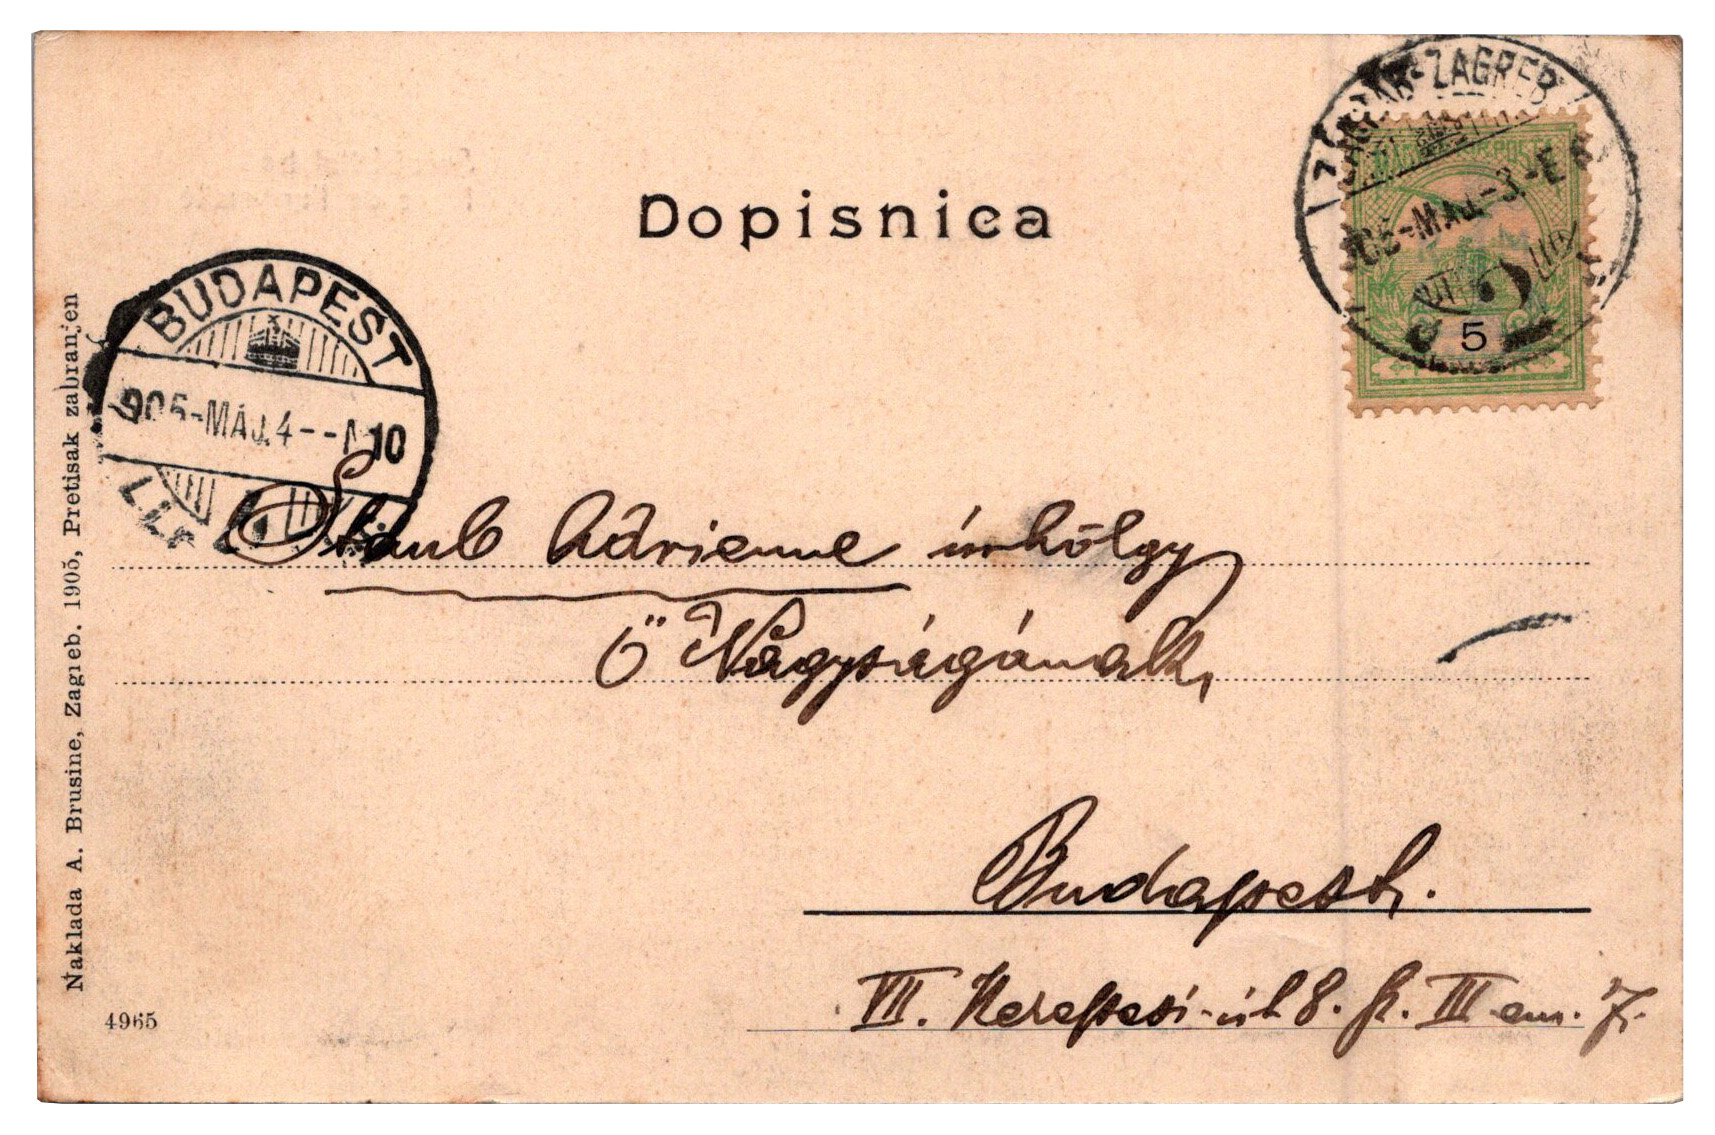 Dopisnica
ZÁGRÁB-ZAGREB
905-MÁJ.-3.-E 6
MAGYAR KIR. POSTA
5
BUDAPEST
905-MÁJ.4--N10
Staub Adrienne úrhölgy
Ő Nagyságának,
Budapest.
VII. Kerepesi-út 8. fr. III em. 7.
Naklada A. Brusine, Zagreb. 1905, Pretisak zabranjen
4965